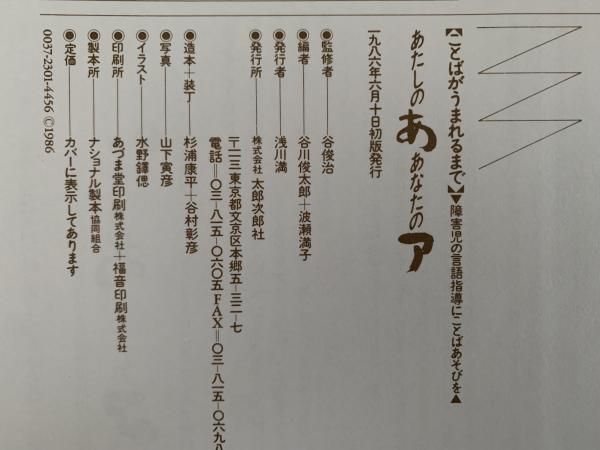 【ことばがうまれるまで】▼障害児の言語指導にことばあそびを▲
あたしのあ あなたのア
一九八六年六月十日初版発行
●監修者——谷俊治
●編者——谷川俊太郎+波瀬満子
●発行者——浅川満
●発行所——株式会社 太郎次郎社
〒一一三 東京都文京区本郷五-三二-七
電話=〇三-八一五-〇六〇五 FAX=〇三-八一五-〇六九八
●造本+装丁——杉浦康平+谷村彰彦
●写真——山下寅彦
●イラスト——水野鐸偲
●印刷所——あづま堂印刷株式会社+福音印刷株式会社
●製本所——ナショナル製本協同組合
●定価——カバーに表示してあります
0037-2301-4456 ©1986